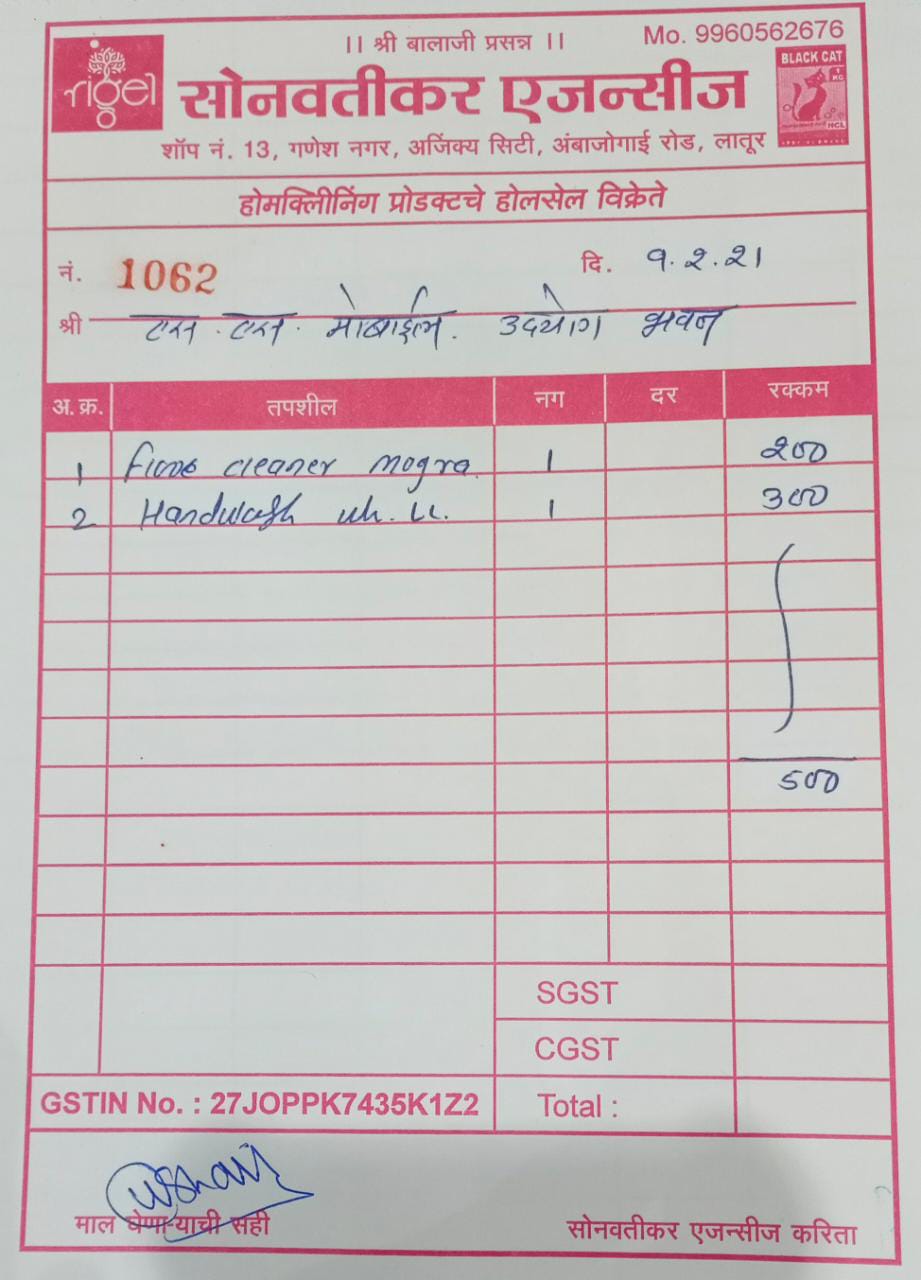 ।। श्री बालाजी प्रसन्न ।। Mo. 9960562676
rigel BLACK CAT
1 KG
HCL
सोनवतीकर एजन्सीज
शॉप नं. 13, गणेश नगर, अजिंक्य सिटी, अंबाजोगाई रोड, लातूर
होमक्लिीनिंग प्रोडक्टचे होलसेल विक्रेते
नं. 1062 दि. ९.२.२१
श्री एस. एस. मोबाईल. उदयोग भवन
अ. क्र. तपशील नग दर रक्कम
1 cleaner mogra 1 200
2 Handwash 1 300
500
SGST
CGST
GSTIN No. : 27JOPPK7435K1Z2 Total :
माल घेणाऱ्याची सही सोनवतीकर एजन्सीज करिता